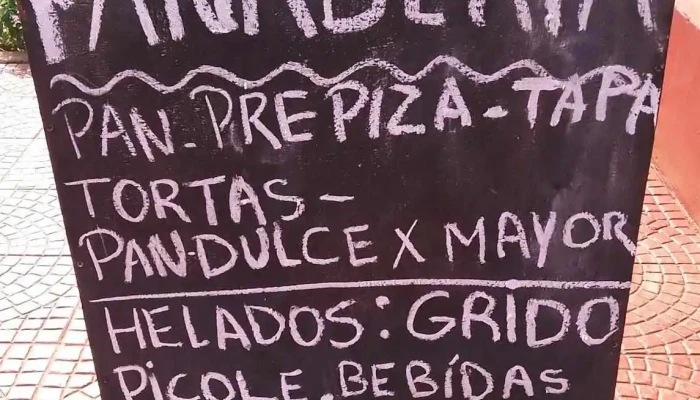 PANADERIA
PAN-PREPIZA-TAPA
TORTAS-
PAN-DULCE X MAYOR
HELADOS: GRIDO
PICOLE.BEBÍDAS